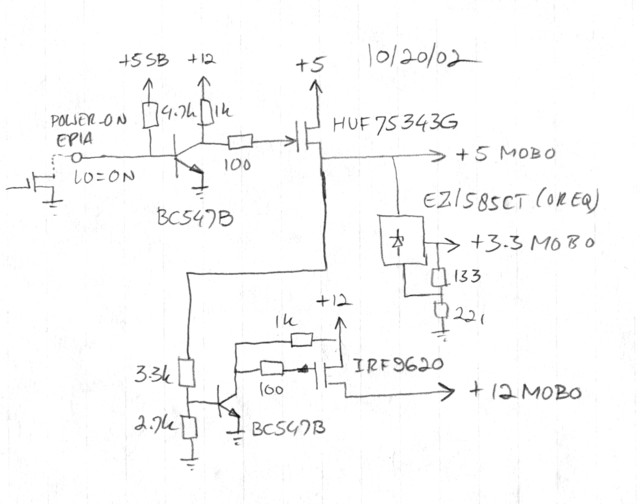 10/20/02
+5SB
+12
+5
4.7k
1k
POWER-ON
EPIA
LO=ON
100
HUF75343G
BC547B
+5 MOBO
EZ1585CT (OR EQ)
+3.3 MOBO
133
221
+12
1k
3.3k
100
IRF9620
+12 MOBO
2.7k
BC547B